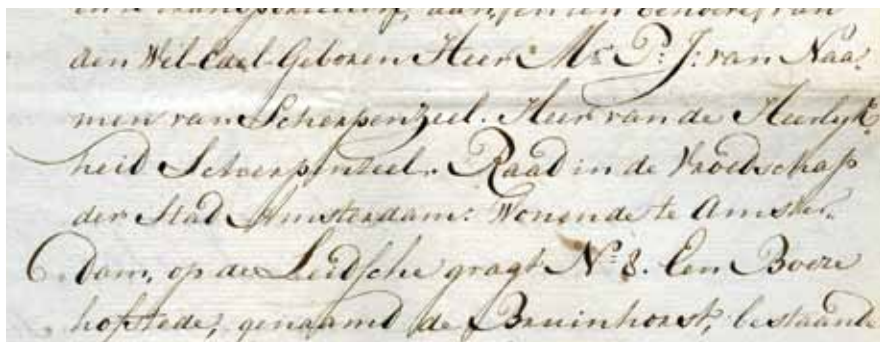 en te transporteeren, aan, en ten behoeve van
den Wel-Edel-Geboren Heer Mr. P: J: van Naa-
men van Scherpenzeel. Heer van de Heerlyk-
heid Scherpenzeel. Raad in de Vroedschap
der Stad Amsterdam: Wonende te Amster-
dam, op de Leidsche gragt No. 8. Een Boere
hofstede, genaamd de Bruinhorst, bestaande